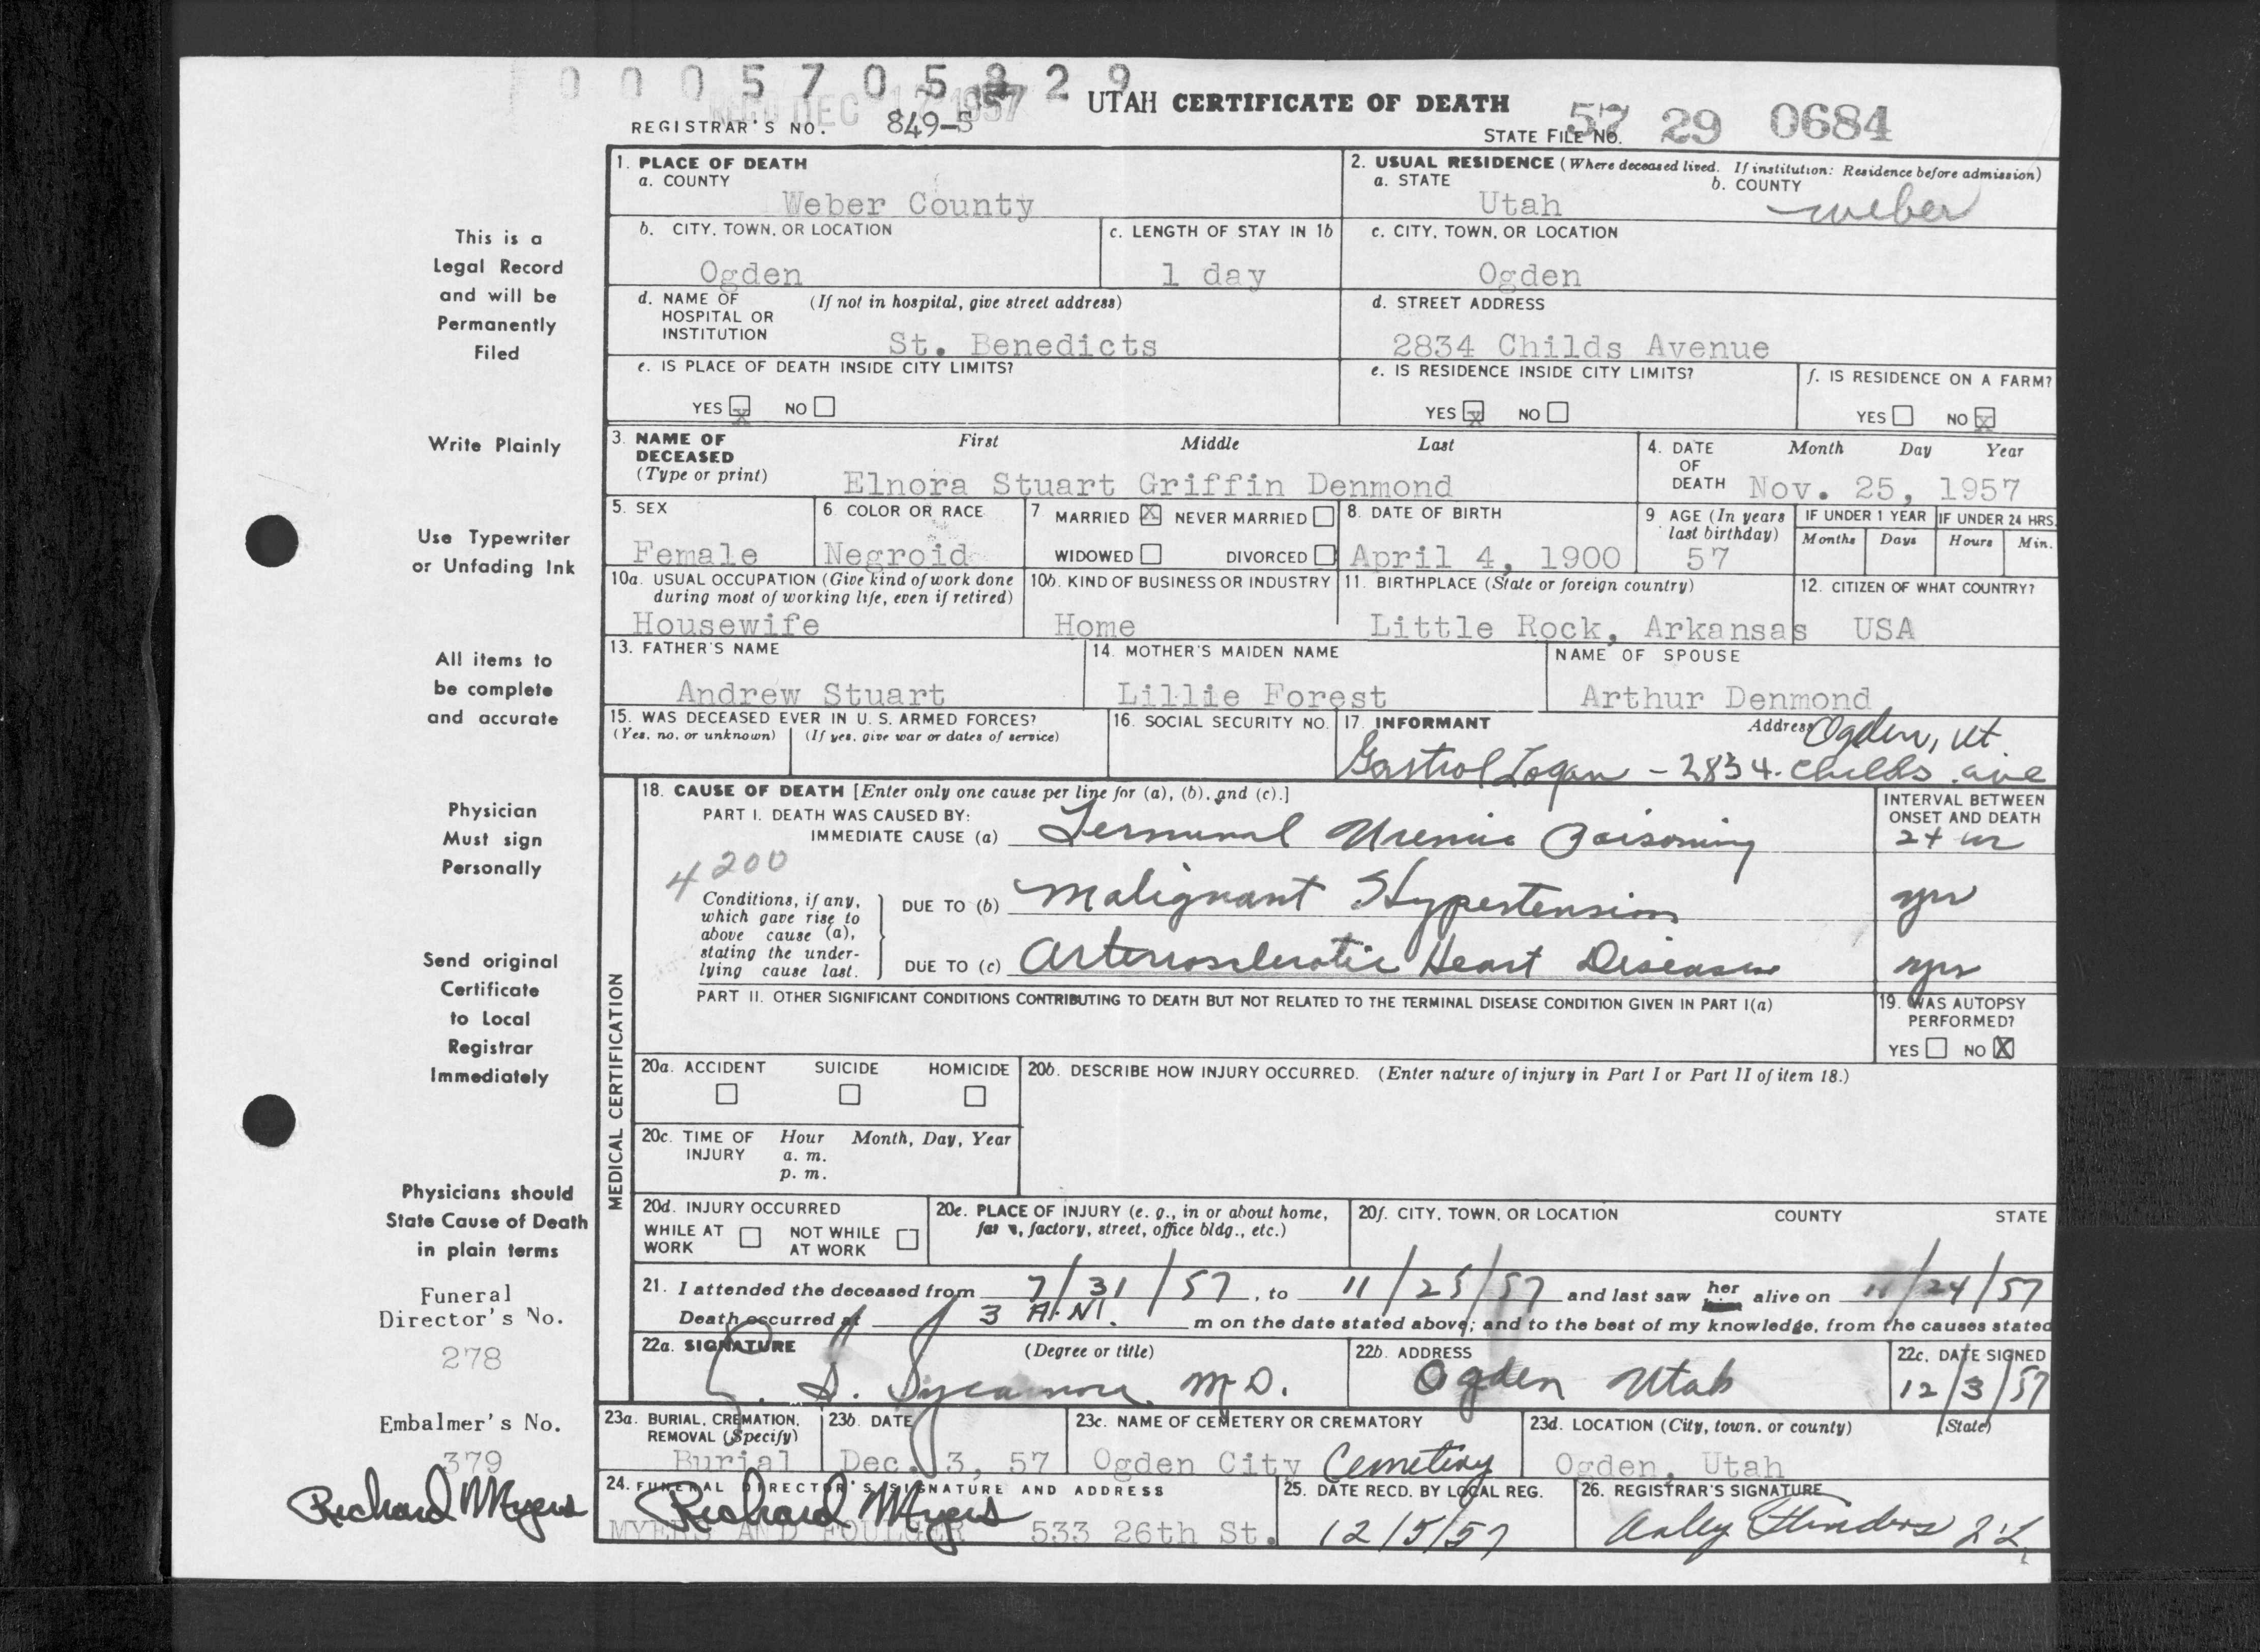 0 0 0 5 7 0 5 8 2 9
REC'D DEC 17 1957
UTAH CERTIFICATE OF DEATH
REGISTRAR'S NO. 849-S
STATE FILE NO. 57 29 0684
This is a
Legal Record
and will be
Permanently
Filed
Write Plainly
Use Typewriter
or Unfading Ink
All items to
be complete
and accurate
Physician
Must sign
Personally
Send original
Certificate
to Local
Registrar
Immediately
Physicians should
State Cause of Death
in plain terms
Funeral
Director's No.
278
Embalmer's No.
379
Richard M Myers
1. PLACE OF DEATH
a. COUNTY
Weber County
2. USUAL RESIDENCE (Where deceased lived. If institution: Residence before admission)
a. STATE b. COUNTY
Utah Weber
b. CITY, TOWN, OR LOCATION c. LENGTH OF STAY IN 1b
Ogden 1 day
c. CITY, TOWN, OR LOCATION
Ogden
d. NAME OF (If not in hospital, give street address)
HOSPITAL OR
INSTITUTION
St. Benedicts
d. STREET ADDRESS
2834 Childs Avenue
e. IS PLACE OF DEATH INSIDE CITY LIMITS?
YES x NO
e. IS RESIDENCE INSIDE CITY LIMITS?
YES x NO
f. IS RESIDENCE ON A FARM?
YES NO x
3. NAME OF First Middle Last
DECEASED
(Type or print)
Elnora Stuart Griffin Denmond
4. DATE Month Day Year
OF
DEATH Nov. 25, 1957
5. SEX
Female
6. COLOR OR RACE
Negroid
7 MARRIED X NEVER MARRIED
WIDOWED DIVORCED
8. DATE OF BIRTH
April 4, 1900
9 AGE (In years
last birthday)
57
IF UNDER 1 YEAR IF UNDER 24 HRS.
Months Days Hours Min.
10a. USUAL OCCUPATION (Give kind of work done
during most of working life, even if retired)
Housewife
10b. KIND OF BUSINESS OR INDUSTRY
Home
11. BIRTHPLACE (State or foreign country)
Little Rock, Arkansas
12. CITIZEN OF WHAT COUNTRY?
USA
13. FATHER'S NAME
Andrew Stuart
14. MOTHER'S MAIDEN NAME
Lillie Forest
NAME OF SPOUSE
Arthur Denmond
15. WAS DECEASED EVER IN U. S. ARMED FORCES?
(Yes, no, or unknown) (If yes, give war or dates of service)
16. SOCIAL SECURITY NO.
17. INFORMANT Address Ogden, Ut.
Logan - 2834. Childs ave
MEDICAL CERTIFICATION
18. CAUSE OF DEATH [Enter only one cause per line for (a), (b), and (c).]
PART I. DEATH WAS CAUSED BY:
IMMEDIATE CAUSE (a) Terminal Uremic Poisoning
INTERVAL BETWEEN
ONSET AND DEATH
24 hr
4200
Conditions, if any,
which gave rise to
above cause (a),
stating the under-
lying cause last.
DUE TO (b) Malignant Hypertension yrs
DUE TO (c) Arteriosclerotic Heart Disease yrs
PART II. OTHER SIGNIFICANT CONDITIONS CONTRIBUTING TO DEATH BUT NOT RELATED TO THE TERMINAL DISEASE CONDITION GIVEN IN PART I(a)
19. WAS AUTOPSY
PERFORMED?
YES NO X
20a. ACCIDENT SUICIDE HOMICIDE
20b. DESCRIBE HOW INJURY OCCURRED. (Enter nature of injury in Part I or Part II of item 18.)
20c. TIME OF Hour Month, Day, Year
INJURY a. m.
p. m.
20d. INJURY OCCURRED
WHILE AT NOT WHILE
WORK AT WORK
20e. PLACE OF INJURY (e. g., in or about home,
farm, factory, street, office bldg., etc.)
20f. CITY, TOWN, OR LOCATION COUNTY STATE
21. I attended the deceased from 7/31/57, to 11/25/57 and last saw her alive on 11/24/57
Death occurred at 3 A.M. m on the date stated above; and to the best of my knowledge, from the causes stated
22a. SIGNATURE (Degree or title)
S. Sycamore M.D.
22b. ADDRESS
Ogden Utah
22c. DATE SIGNED
12/3/57
23a. BURIAL, CREMATION,
REMOVAL (Specify)
Burial
23b. DATE
Dec. 3, 57
23c. NAME OF CEMETERY OR CREMATORY
Ogden City Cemetery
23d. LOCATION (City, town, or county) (State)
Ogden, Utah
24. FUNERAL DIRECTOR'S SIGNATURE AND ADDRESS
Richard M Myers
MYERS AND FOULGER 533 26th St.
25. DATE RECD. BY LOCAL REG.
12/5/57
26. REGISTRAR'S SIGNATURE